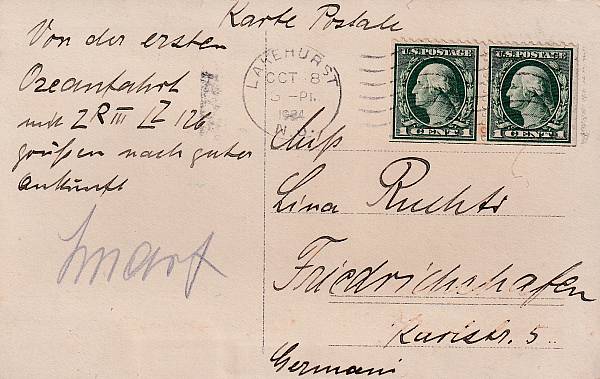 Karte Postale
Von der ersten
Ozeanfahrt
mit ZR III LZ 126
grüßen nach guter
Ankunft
LAKEHURST
OCT 8
1924
N.J.
U.S. POSTAGE
1 CENT 1
U.S. POSTAGE
1 CENT 1
Miss
Lina Ruchte
Friedrichshafen
str. 5
Germani